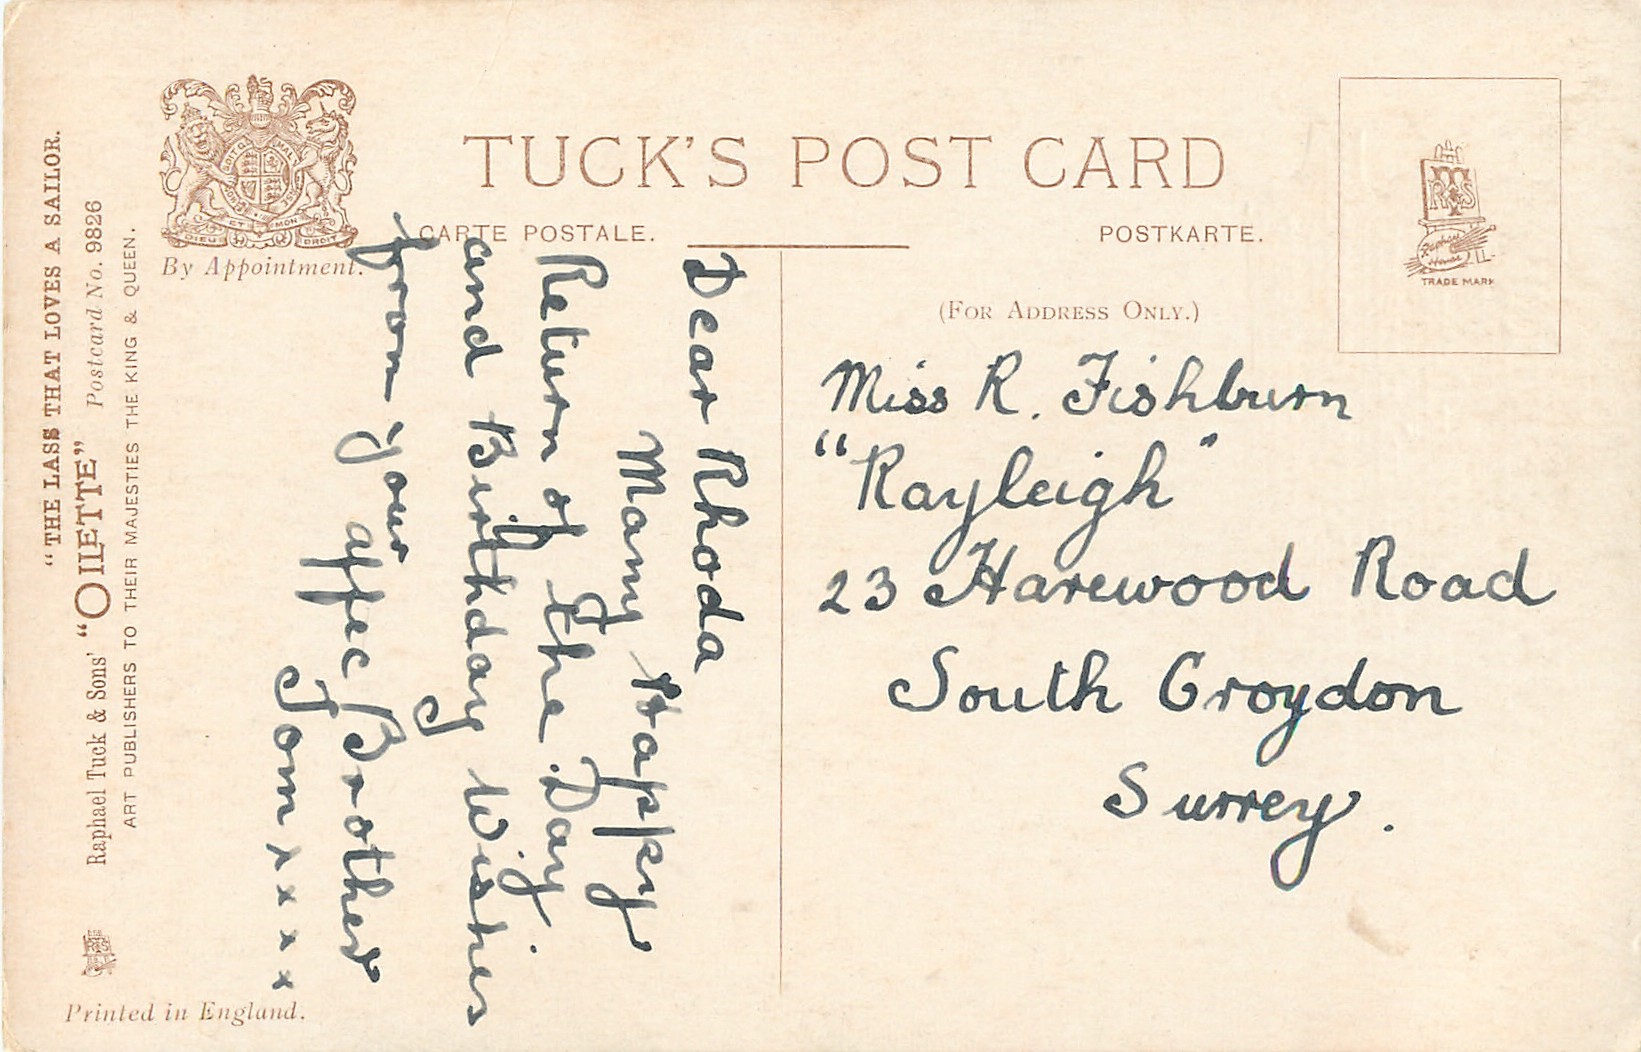 "THE LASS THAT LOVES A SAILOR.
Raphael Tuck & Sons' "OILETTE" Postcard No. 9826
ART PUBLISHERS TO THEIR MAJESTIES THE KING & QUEEN.
By Appointment.
Printed in England.
TUCK'S POST CARD
CARTE POSTALE.
POSTKARTE.
TRADE MARK
(FOR ADDRESS ONLY.)
Dear Rhoda
Many Happy
Return of the Day.
and Birthday Wishes
from your
affec Brother
Tom x x x x
Miss R. Fishburn
"Rayleigh"
23 Harewood Road
South Croydon
Surrey.